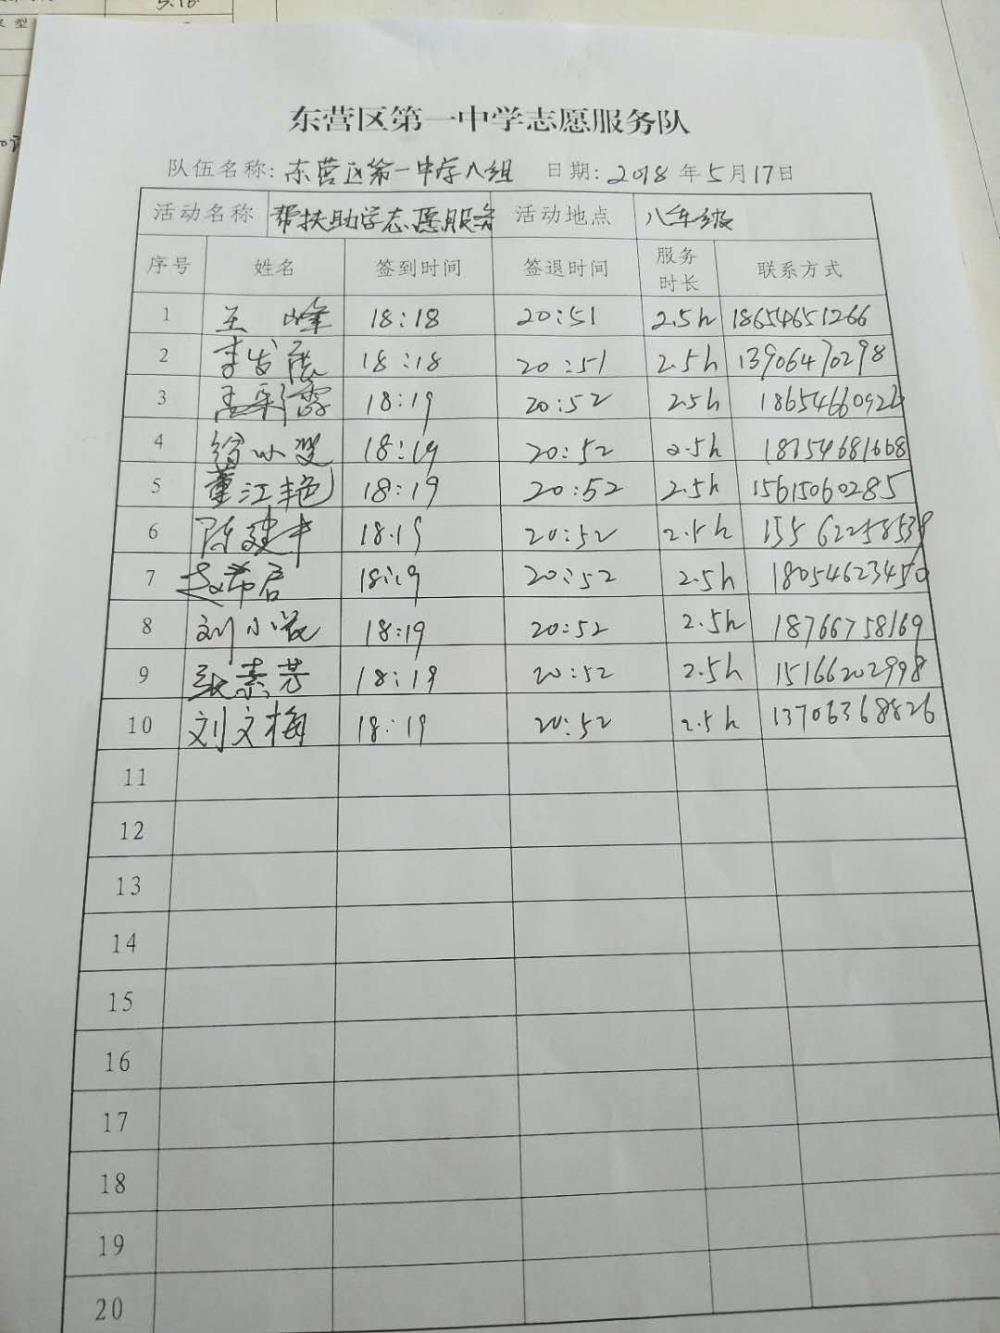 5.16
东营区第一中学志愿服务队
队伍名称: 东营区第一中学八组 日期: 2018 年 5 月 17 日
活动名称 帮扶助学志愿服务 活动地点 八年级
序号 姓名 签到时间 签退时间 服务时长 联系方式
1 王峰 18:18 20:51 2.5h 18654651266
2 李发展 18:18 20:51 2.5h 13906470298
3 18:19 20:52 2.5h
4 18:19 20:52 2.5h 18754681668
5 董江艳 18:19 20:52 2.5h 15615060285
6 陈建中 18:19 20:52 2.5h 15562258539
7 赵希启 18:19 20:52 2.5h 18054623450
8 刘小
 18:19 20:52 2.5h 18766758169
9 张素芳 18:19 20:52 2.5h 15166202998
10 刘文梅 18:19 20:52 2.5h 13706368826
11
12
13
14
15
16
17
18
19
20